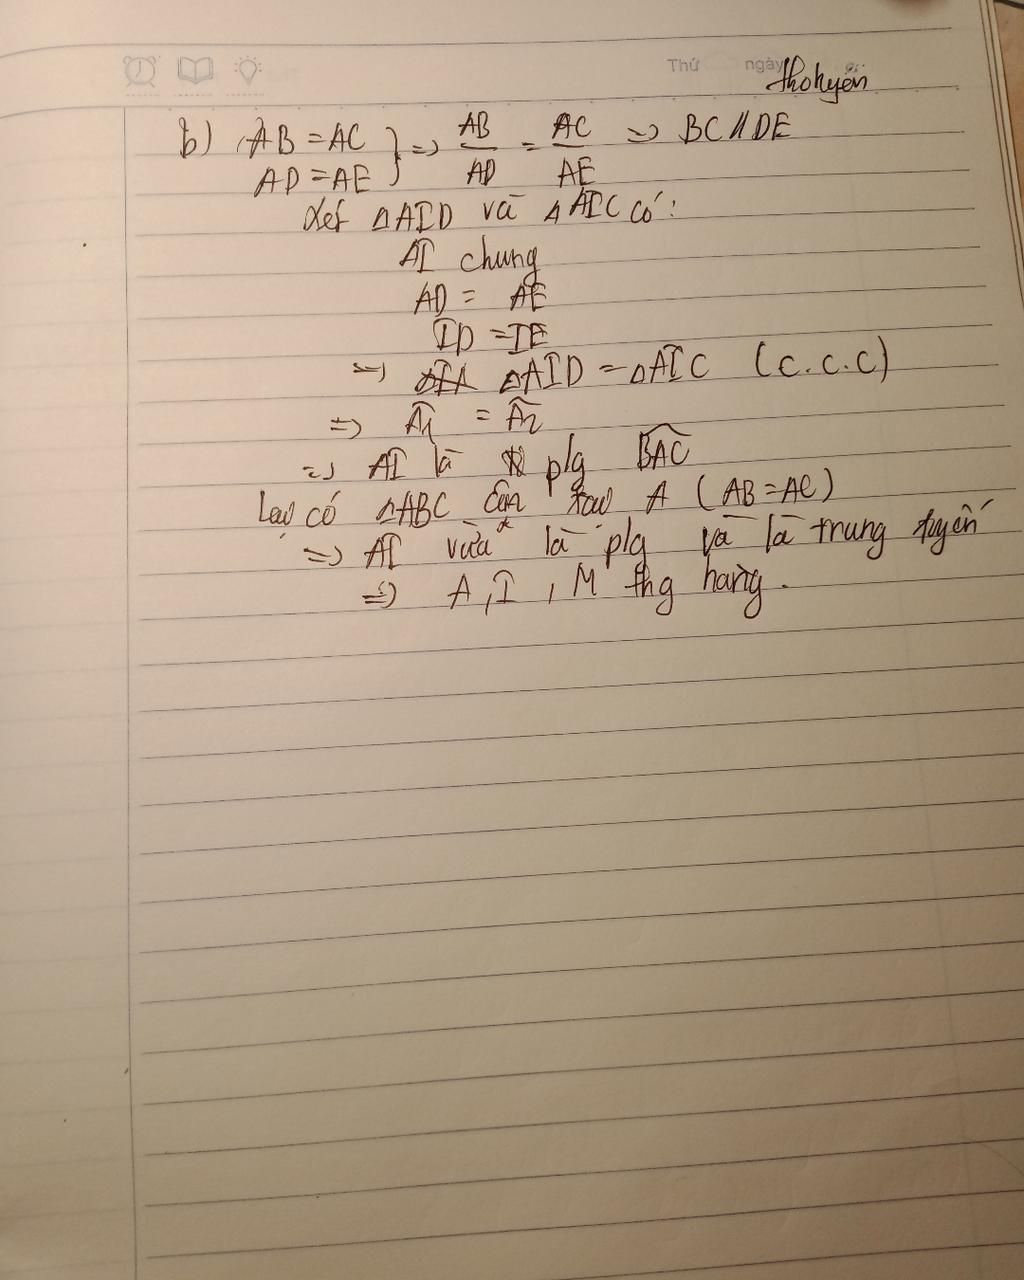 Thứ ngày
thohyén
b) AB = AC } => AB/AD = AC/AE => BC // DE
AD = AE
Xét ΔAID và ΔAIC có:
AI chung
AD = AE
ID = IE
=> ΔAID = ΔAIC (c.c.c)
=> Â1 = Â2
=> AI là plg BAC
Lại có ΔABC cân tại A (AB = AC)
=> AI vừa là plg và là trung tuyến
=> A, I, M thg hàng.